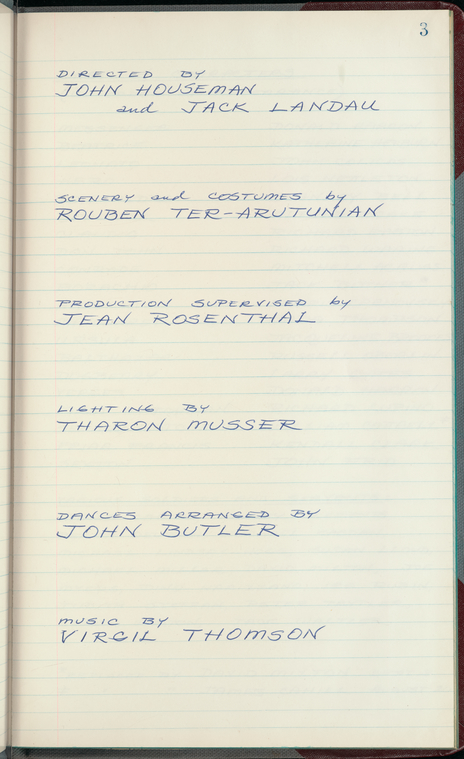 3
DIRECTED BY
JOHN HOUSEMAN
and JACK LANDAU
SCENERY and COSTUMES by
ROUBEN TER-ARUTUNIAN
PRODUCTION SUPERVISED by
JEAN ROSENTHAL
LIGHTING BY
THARON MUSSER
DANCES ARRANGED BY
JOHN BUTLER
MUSIC BY
VIRGIL THOMSON